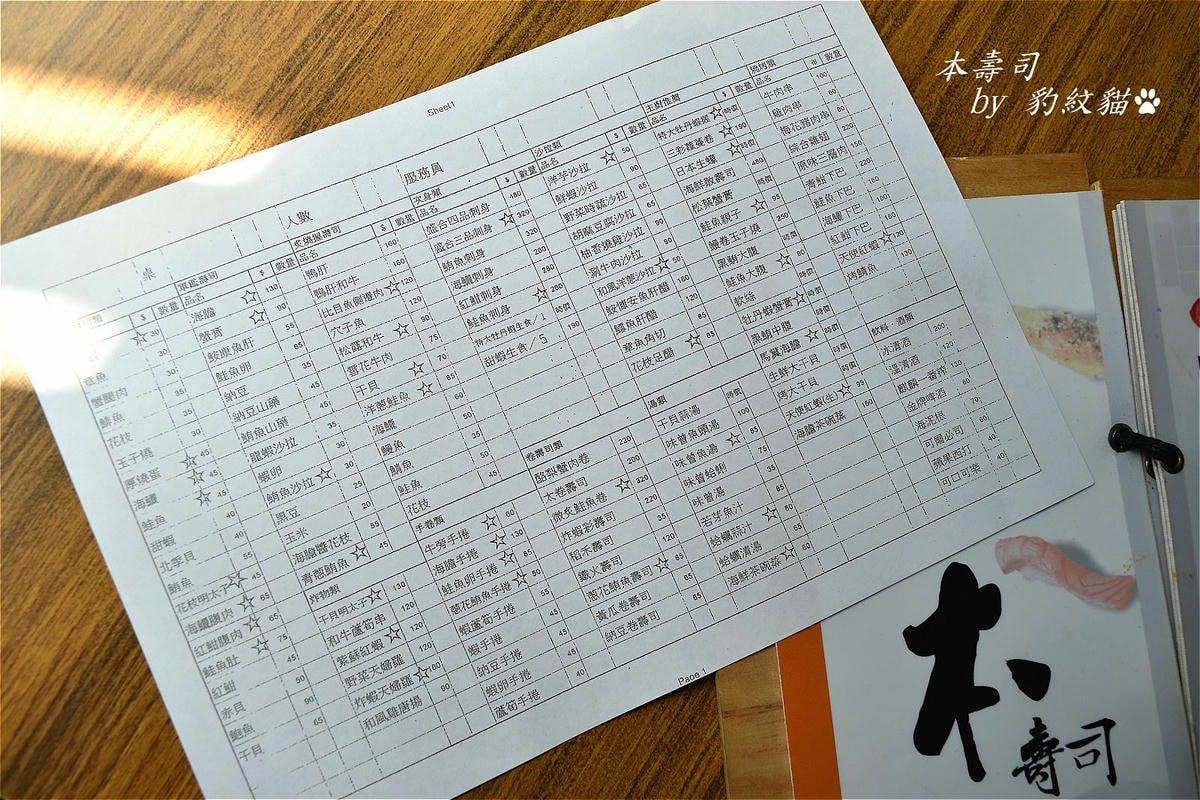 本壽司
by 豹紋貓
Sheet1
桌
人數
服務員
$
數量
軍艦壽司
$
數量
品名
海膽
130
蟹膏
90
鮟康魚肝
55
鮭魚卵
65
納豆
35
納豆山藥
45
鮪魚山藥
龍蝦沙拉
蝦卵
鮪魚沙拉
30
黑豆
25
玉米
海膽醬花枝
55
青蔥鮪魚
45
章魚
蟹腿肉
鯖魚
花枝
玉子燒
厚燒蛋
海鱺
鮭魚
甜蝦
北季貝
鮪魚
花枝明太子
海鱺腹肉
紅魽腹肉
鮭魚肚
紅魽
赤貝
鮑魚
干貝
炸物類
干貝明太子
130
和牛蘆筍串
120
紫蘇紅蝦
120
野菜天婦羅
炸蝦天婦羅
100
和風雞唐揚
90
炙燒握壽司
$
數量
品名
鴨肝
160
鴨肝和牛
160
比目魚側邊肉
120
穴子魚
120
松露和牛
90
雪花牛肉
干貝
70
洋蔥鮭魚
海鱺
鰻魚
鯖魚
鮭魚
花枝
手卷類
牛旁手捲
60
海膽手捲
130
鮭魚卵手捲
85
蔥花鮪魚手捲
50
蝦蘆筍手捲
蝦手捲
45
納豆手捲
45
蝦卵手捲
蘆筍手捲
40
次身類
$
數量
品名
盛合四品刺身
480
盛合三品刺身
320
鮪魚刺身
320
海鱺刺身
280
紅魽刺身
280
鮭魚刺身
280
特大牡丹蝦生食／1
時價
甜蝦生食／5
190
卷壽司類
酪梨蟹肉卷
220
太卷壽司
200
微炙鮭魚卷
320
炸蝦彩壽司
220
稻禾壽司
35
鐵火壽司
蔥花鮪魚壽司
85
黃瓜卷壽司
納豆卷壽司
沙拉類
$
數量
品名
洋芋沙拉
50
鮮蝦沙拉
90
野菜時蔬沙拉
胡麻豆腐沙拉
柚香燒雞沙拉
90
涮牛肉沙拉
90
和風洋蔥沙拉
50
鮟慷安魚肝醋
180
鱈魚肝醋
120
章魚角切
花枝足醋
85
湯類
干貝蒜湯
時價
味曾魚頭湯
100
味曾魚湯
85
味曾蛤蜊
75
味曾湯
35
若芽魚汁
蛤蠣蒜汁
80
蛤蠣清湯
海鮮茶碗蒸
60
主廚推薦
$
數量
品名
特大牡丹蝦握
時價
三彩蘿蔓卷
190
日本生蠔
時價
海鮮散壽司
480
松葉蟹膏
時價
鮭魚親子
鰻卷玉子燒
250
黑鮪大腹
時價
鮭魚大腹
軟絲
牡丹蝦蟹膏
時價
黑鮪中腹
時價
馬糞海膽
時價
生鮮大干貝
時價
烤大干貝
時價
天使紅蝦(生)
95
海膽茶碗蒸
160
燒烤類
數量
品名
牛肉串
100
雞肉串
梅花豬肉串
綜合雞妞
220
原味三層肉
150
青魽下巴
220
鮭魚下巴
海鱺下巴
紅魽下巴
天使紅蝦
120
烤鯖魚
130
飲料、酒類
冰清酒
200
溫清酒
120
麒麟一番搾
130
金牌啤酒
海泥根
70
可爾必司
蘋果西打
40
可口可樂
40
Page 1
本
壽司